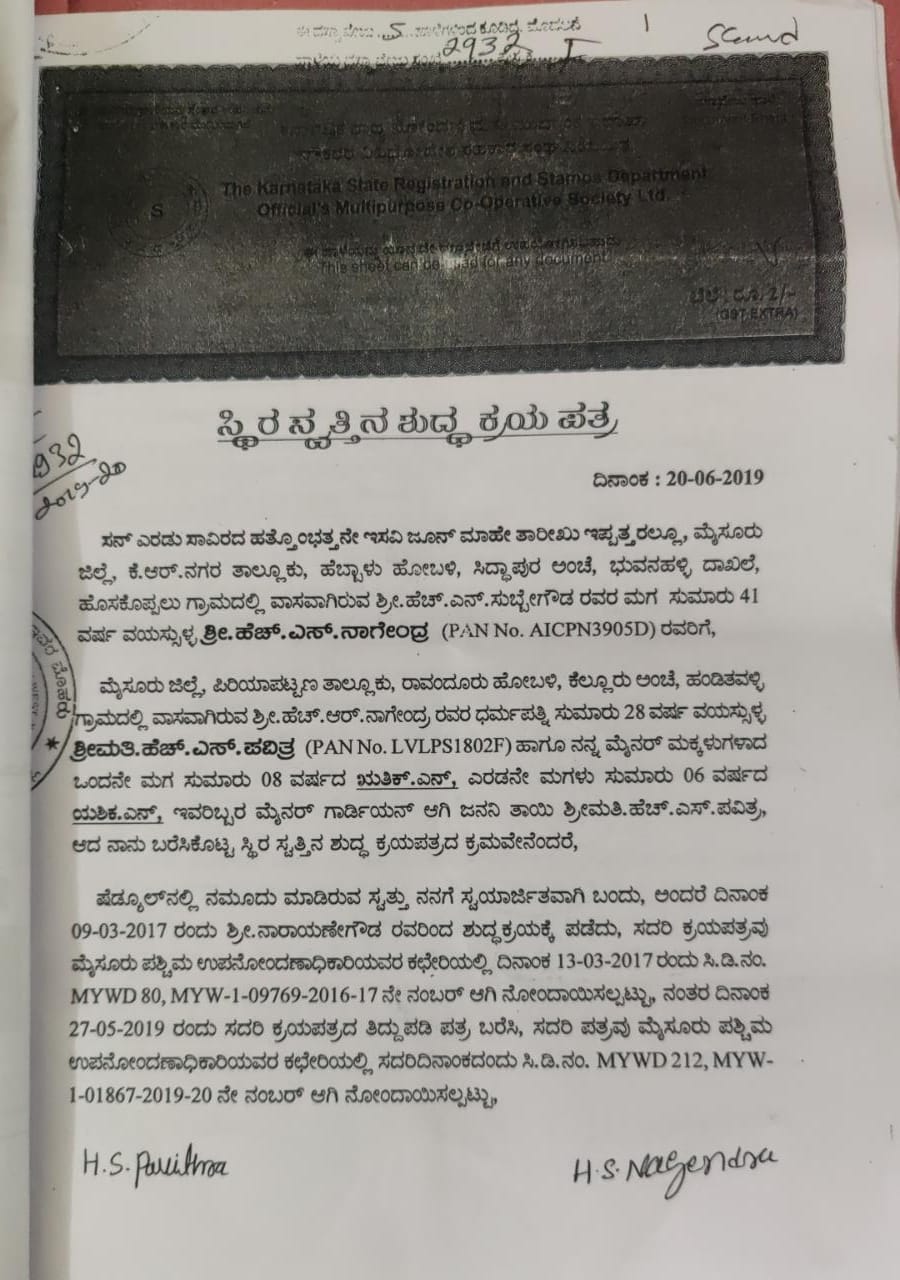 ಈ ದಸ್ತಾವೇಜು 5 ಹಾಳೆಗಳಿಂದ ಕೂಡಿದ್ದು ಮೊದಲನೆ 1 Scanned
2932 I
The Karnataka State Registration and Stamps Department
Official's Multipurpose Co-Operative Society Ltd.
S
This sheet can be used for any document
ಬೆಲೆ : ರೂ. 2/-
(GST EXTRA)
ಸ್ಥಿರ ಸ್ವತ್ತಿನ ಶುದ್ಧ ಕ್ರಯ ಪತ್ರ
2932
2019-20
ದಿನಾಂಕ : 20-06-2019
ಸನ್ ಎರಡು ಸಾವಿರದ ಹತ್ತೊಂಭತ್ತನೇ ಇಸವಿ ಜೂನ್ ಮಾಹೇ ತಾರೀಖು ಇಪ್ಪತ್ತರಲ್ಲೂ, ಮೈಸೂರು
ಜಿಲ್ಲೆ, ಕೆ.ಆರ್.ನಗರ ತಾಲ್ಲೂಕು, ಹೆಬ್ಬಾಳು ಹೋಬಳಿ, ಸಿದ್ಧಾಪುರ ಅಂಚೆ, ಭುವನಹಳ್ಳಿ ದಾಖಲೆ,
ಹೊಸಕೊಪ್ಪಲು ಗ್ರಾಮದಲ್ಲಿ ವಾಸವಾಗಿರುವ ಶ್ರೀ.ಹೆಚ್.ಎನ್.ಸುಬ್ಬೇಗೌಡ ರವರ ಮಗ ಸುಮಾರು 41
ವರ್ಷ ವಯಸ್ಸುಳ್ಳ ಶ್ರೀ.ಹೆಚ್.ಎಸ್.ನಾಗೇಂದ್ರ (PAN No. AICPN3905D) ರವರಿಗೆ,
ಮೈಸೂರು ಜಿಲ್ಲೆ, ಪಿರಿಯಾಪಟ್ಟಣ ತಾಲ್ಲೂಕು, ರಾವಂದೂರು ಹೋಬಳಿ, ಕೆಲ್ಲೂರು ಅಂಚೆ, ಹಂಡಿತವಳ್ಳಿ
ಗ್ರಾಮದಲ್ಲಿ ವಾಸವಾಗಿರುವ ಶ್ರೀ.ಹೆಚ್.ಆರ್.ನಾಗೇಂದ್ರ ರವರ ಧರ್ಮಪತ್ನಿ ಸುಮಾರು 28 ವರ್ಷ ವಯಸ್ಸುಳ್ಳ
ಶ್ರೀಮತಿ.ಹೆಚ್.ಎಸ್.ಪವಿತ್ರ (PAN No. LVLPS1802F) ಹಾಗೂ ನನ್ನ ಮೈನರ್ ಮಕ್ಕಳುಗಳಾದ
ಒಂದನೇ ಮಗ ಸುಮಾರು 08 ವರ್ಷದ ಋತಿಕ್.ಎನ್, ಎರಡನೇ ಮಗಳು ಸುಮಾರು 06 ವರ್ಷದ
ಯಶಿಕ.ಎನ್, ಇವರಿಬ್ಬರ ಮೈನರ್ ಗಾರ್ಡಿಯನ್ ಆಗಿ ಜನನಿ ತಾಯಿ ಶ್ರೀಮತಿ.ಹೆಚ್.ಎಸ್.ಪವಿತ್ರ,
ಆದ ನಾನು ಬರೆಸಿಕೊಟ್ಟ ಸ್ಥಿರ ಸ್ವತ್ತಿನ ಶುದ್ಧ ಕ್ರಯಪತ್ರದ ಕ್ರಮವೇನೆಂದರೆ,
ಷೆಡ್ಯೂಲ್‌ನಲ್ಲಿ ನಮೂದು ಮಾಡಿರುವ ಸ್ವತ್ತು ನನಗೆ ಸ್ವಯಾರ್ಜಿತವಾಗಿ ಬಂದು, ಅಂದರೆ ದಿನಾಂಕ
09-03-2017 ರಂದು ಶ್ರೀ.ನಾರಾಯಣೇಗೌಡ ರವರಿಂದ ಶುದ್ಧಕ್ರಯಕ್ಕೆ ಪಡೆದು, ಸದರಿ ಕ್ರಯಪತ್ರವು
ಮೈಸೂರು ಪಶ್ಚಿಮ ಉಪನೋಂದಣಾಧಿಕಾರಿಯವರ ಕಛೇರಿಯಲ್ಲಿ ದಿನಾಂಕ 13-03-2017 ರಂದು ಸಿ.ಡಿ.ನಂ.
MYWD 80, MYW-1-09769-2016-17 ನೇ ನಂಬರ್ ಆಗಿ ನೋಂದಾಯಿಸಲ್ಪಟ್ಟು, ನಂತರ ದಿನಾಂಕ
27-05-2019 ರಂದು ಸದರಿ ಕ್ರಯಪತ್ರದ ತಿದ್ದುಪಡಿ ಪತ್ರ ಬರೆಸಿ, ಸದರಿ ಪತ್ರವು ಮೈಸೂರು ಪಶ್ಚಿಮ
ಉಪನೋಂದಣಾಧಿಕಾರಿಯವರ ಕಛೇರಿಯಲ್ಲಿ ಸದರಿದಿನಾಂಕದಂದು ಸಿ.ಡಿ.ನಂ. MYWD 212, MYW-
1-01867-2019-20 ನೇ ನಂಬರ್ ಆಗಿ ನೋಂದಾಯಿಸಲ್ಪಟ್ಟು,
H.S. Pavithra
H.S. Nagendra